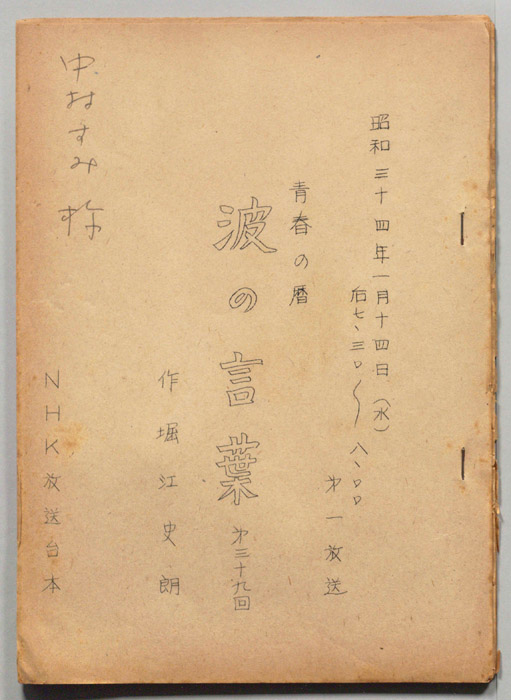 昭和三十四年一月十四日（水）
后七、三〇〜八、〇〇
第一放送
青春の暦
波の言葉 第三十九回
作 堀江史朗
中村すみ様
NHK放送台本